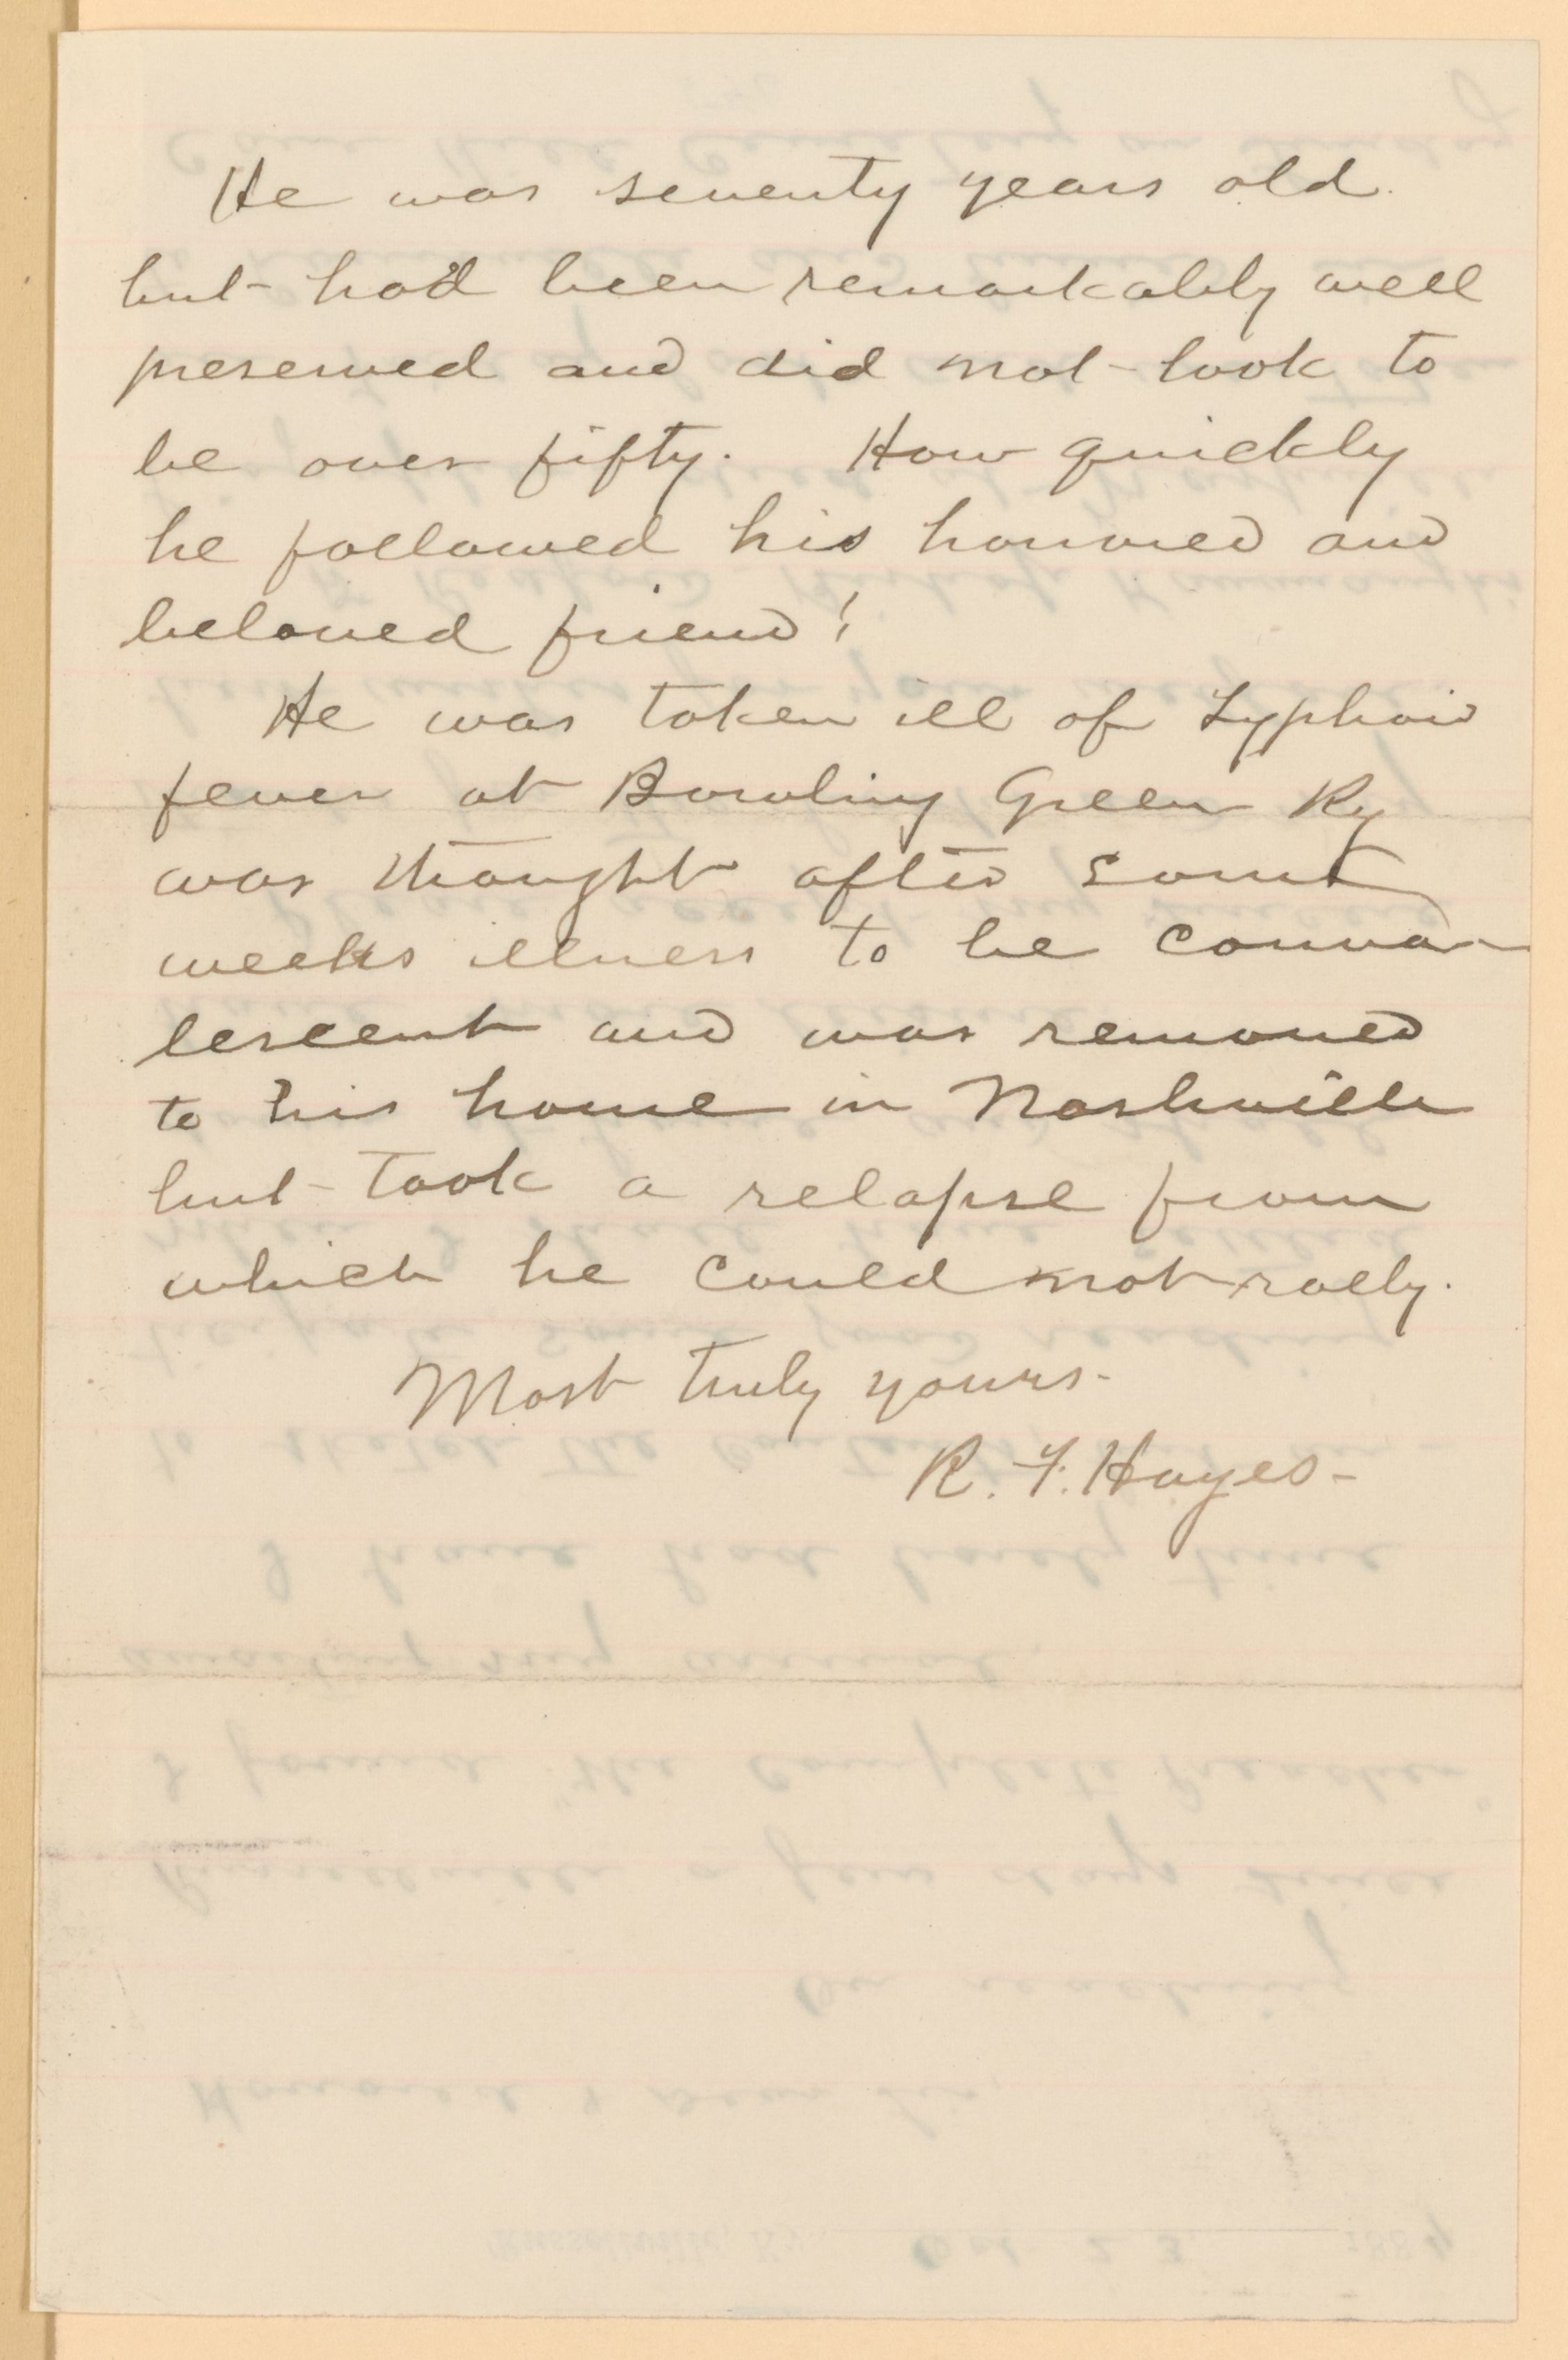 He was seventy years old.
but had been remarkably well
preserved and did not look to
be over fifty. How quickly
he followed his honored and
beloved friend!
He was taken ill of Typhoid
fever at Bowling Green Ky
was thought after some
weeks illness to be conva-
lescent and was removed
to his home in Nashville
but took a relapse from
which he could not rally.
Most truly yours-
R. F. Hayes-